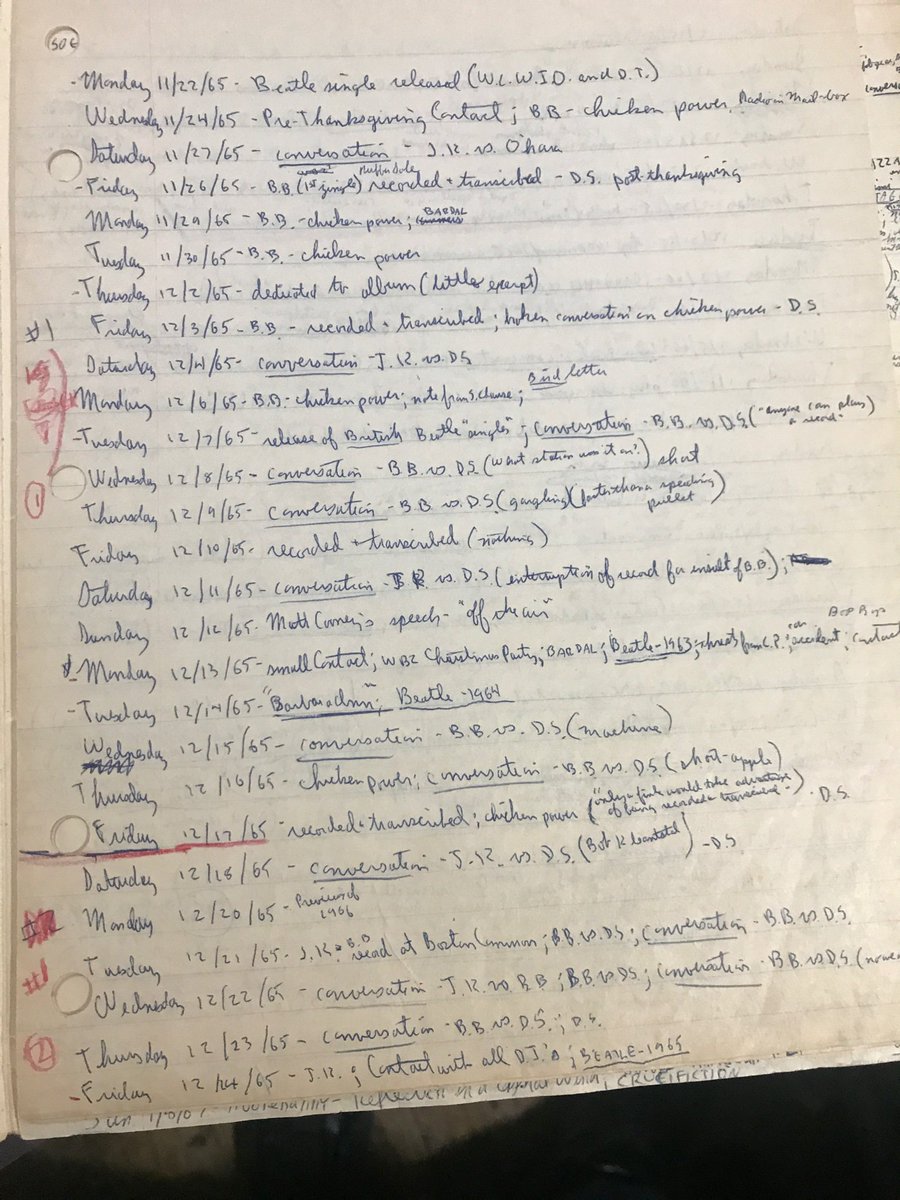 50¢
- Monday 11/22/65 - Beatle single released (W.C.W.I.O. and D.T.)
Wednesday 11/24/65 - Pre-Thanksgiving Contact; B.B. - chicken power, Radio in Mail-box
Saturday 11/27/65 - conversation - J.K. vs. O'hara
- Friday 11/26/65 - B.B. (1st single) recorded + transcribed - D.S. post-thanksgiving
Monday 11/29/65 - B.B. - chicken power; BARDAL
Tuesday 11/30/65 - B.B. - chicken power
- Thursday 12/2/65 - dedicated to album (little exerpt)
#1 Friday 12/3/65 - B.B. - recorded + transcribed; broken conversation on chicken power - D.S.
Saturday 12/4/65 - conversation - J.K. vs. D.S
Monday 12/6/65 - B.B. - chicken power; note from S. Clause; Bird letter
- Tuesday 12/7/65 - release of British Beatle "singles"; conversation - B.B. vs. D.S. ("anyone can play a record")
Wednesday 12/8/65 - conversation - B.B. vs. D.S. (what station was it on?) short
① Thursday 12/9/65 - conversation - B.B. vs. D.S. (gargling) (faster than a speeding pullet)
Friday 12/10/65 - recorded + transcribed (nothing)
Saturday 12/11/65 - conversation - J.K. vs. D.S. (interruption of record for insult of B.B.);
Sunday 12/12/65 - speech - "off the air"
- Monday 12/13/65 - small Contact; WBZ Christmas Party; BARDAL; Beatle - 1963; threats from C.P.; accident; Contact
- Tuesday 12/14/65 - "Barbara Ann"; Beatle - 1964
Wednesday 12/15/65 - conversation - B.B. vs. D.S. (machine)
Thursday 12/16/65 - chicken power; conversation - B.B. vs. D.S. (short-apple)
Friday 12/17/65 - recorded + transcribed; chicken power ("only a fink would take advantage of being recorded + transcribed") - D.S.
Saturday 12/18/65 - conversation - J.K. vs. D.S. - D.S.
Monday 12/20/65 - Preview of 1966
#1 Tuesday 12/21/65 - J.K. + B.B. read at Boston Common; B.B. vs. D.S.; conversation - B.B. vs. D.S.
Wednesday 12/22/65 - conversation - J.K. vs. B.B; B.B. vs. D.S.; conversation - B.B. vs. D.S.
② Thursday 12/23/65 - conversation - B.B. vs. D.S.; D.S.
- Friday 12/24/65 - J.K.; Contact with all D.J.'s; BEATLE - 1965
CRUCIFICTION